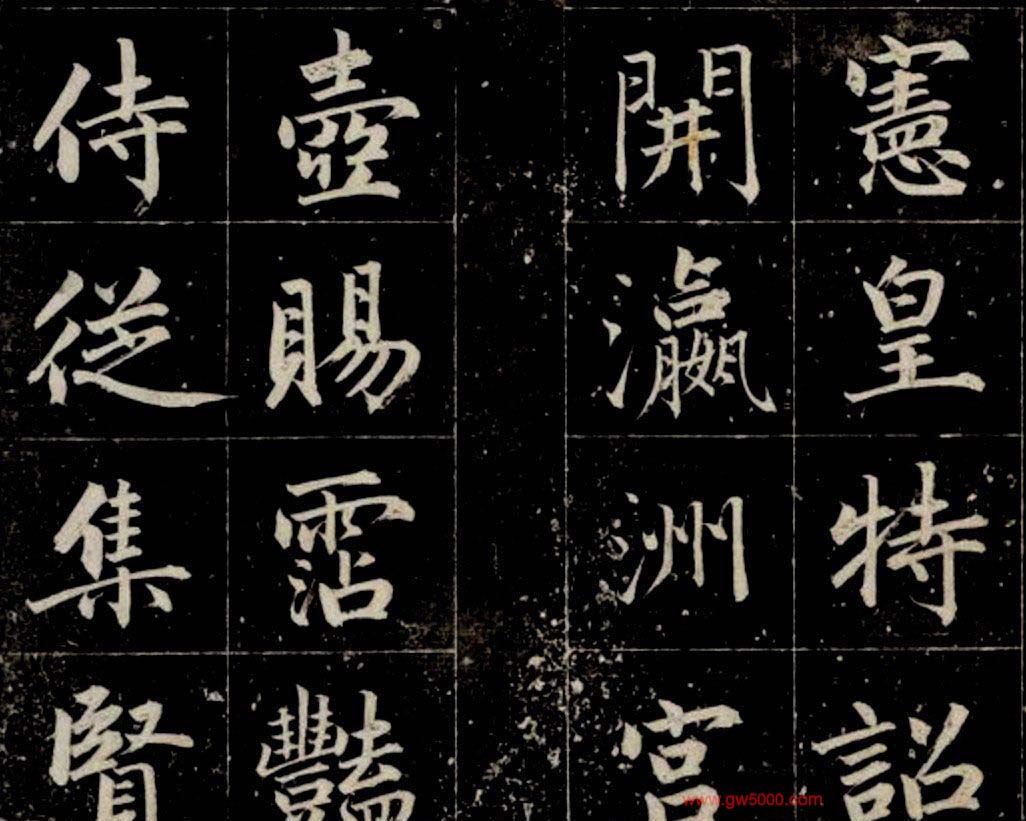 憲皇特詔
開瀛洲宮
壺賜霑豔
侍從集賢
www.gw5000.com